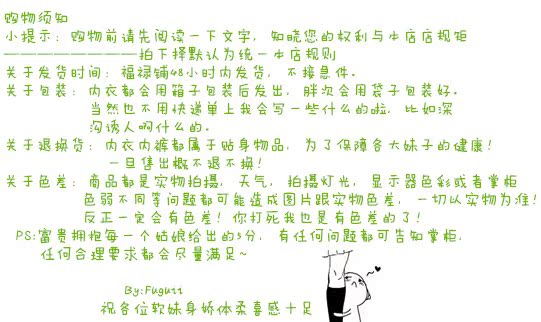 购物须知
小提示：购物前请先阅读一下文字，知晓您的权利与本店店规矩
————————拍下择默认为统一本店规则
关于发货时间：福禄铺48小时内发货，不接急件。
关于包装：内衣都会用箱子包装后发出，胖次会用袋子包装好。
当然也不用快递单上我会写一些什么的啦，比如深
沟诱人啊什么的。
关于退换货：内衣内裤都属于贴身物品，为了保障各大妹子的健康！
一旦售出概不退不换！
关于色差：商品都是实物拍摄，天气，拍摄灯光，显示器色彩或者掌柜
色弱不同等问题都可能造成图片跟实物色差，一切以实物为准！
反正一定会有色差！你打死我也是有色差的了！
PS:富贵拥抱每一个姑娘给出的5分，有任何问题都可告知掌柜，
任何合理要求都会尽量满足~
By:Fugu11
祝各位软妹身娇体柔喜感十足